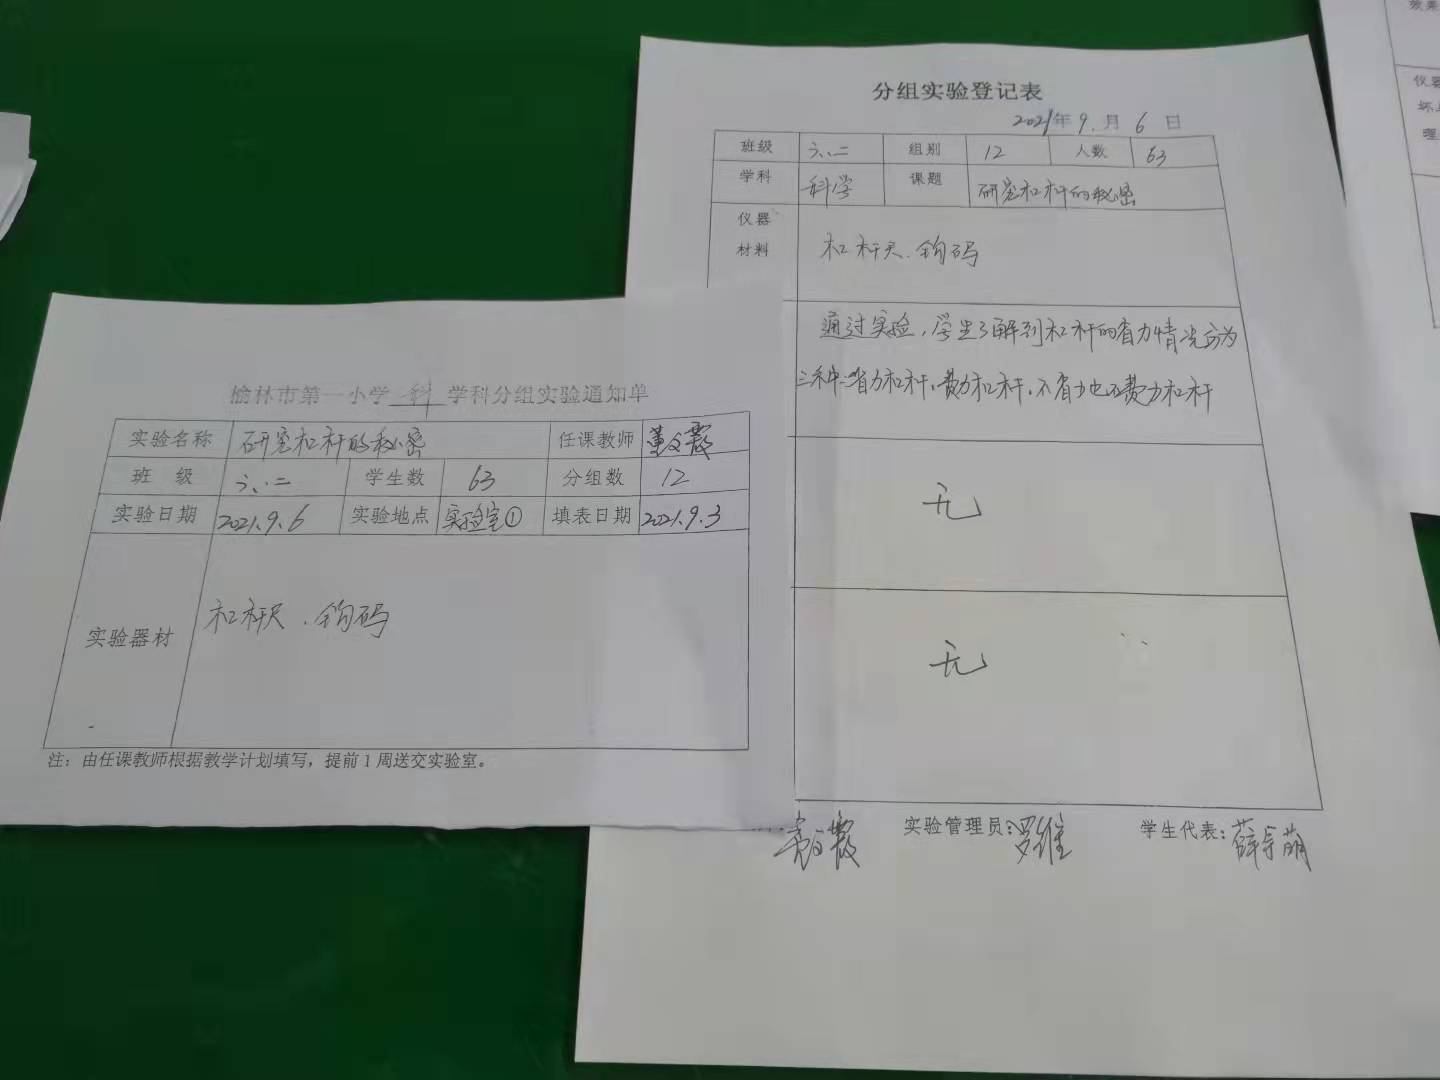 榆林市第一小学 科 学科分组实验通知单
实验名称 研究杠杆的秘密 任课教师 董文霞
班 级 六.二 学生数 63 分组数 12
实验日期 2021.9.6 实验地点 实验室① 填表日期 2021.9.3
实验器材 杠杆尺.钩码
注：由任课教师根据教学计划填写，提前1周送交实验室。
分组实验登记表
2021年9.月6日
班级 六.二 组别 12 人数 63
学科 科学 课题 研究杠杆的秘密
仪器
材料
杠杆尺.钩码
通过实验，学生了解到杠杆的省力情况分为
三种:省力杠杆、费力杠杆、不省力也不费力杠杆
无
无
实验管理员：罗维 学生代表：
效果
仪器
坏
理